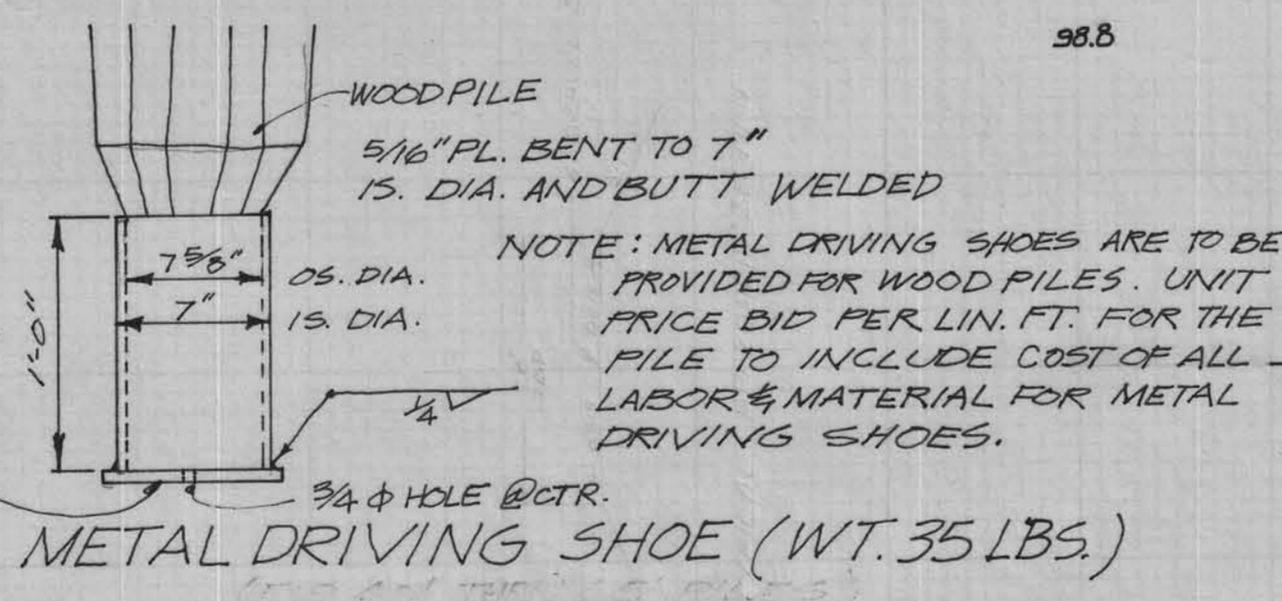 98.8
WOOD PILE
5/16" PL. BENT TO 7"
IS. DIA. AND BUTT WELDED
NOTE: METAL DRIVING SHOES ARE TO BE
PROVIDED FOR WOOD PILES. UNIT
PRICE BID PER LIN. FT. FOR THE
PILE TO INCLUDE COST OF ALL
LABOR & MATERIAL FOR METAL
DRIVING SHOES.
7 5/8" OS. DIA.
7" IS. DIA.
1'-0"
1/4
3/4 φ HOLE @ CTR.
METAL DRIVING SHOE (WT. 35 LBS.)